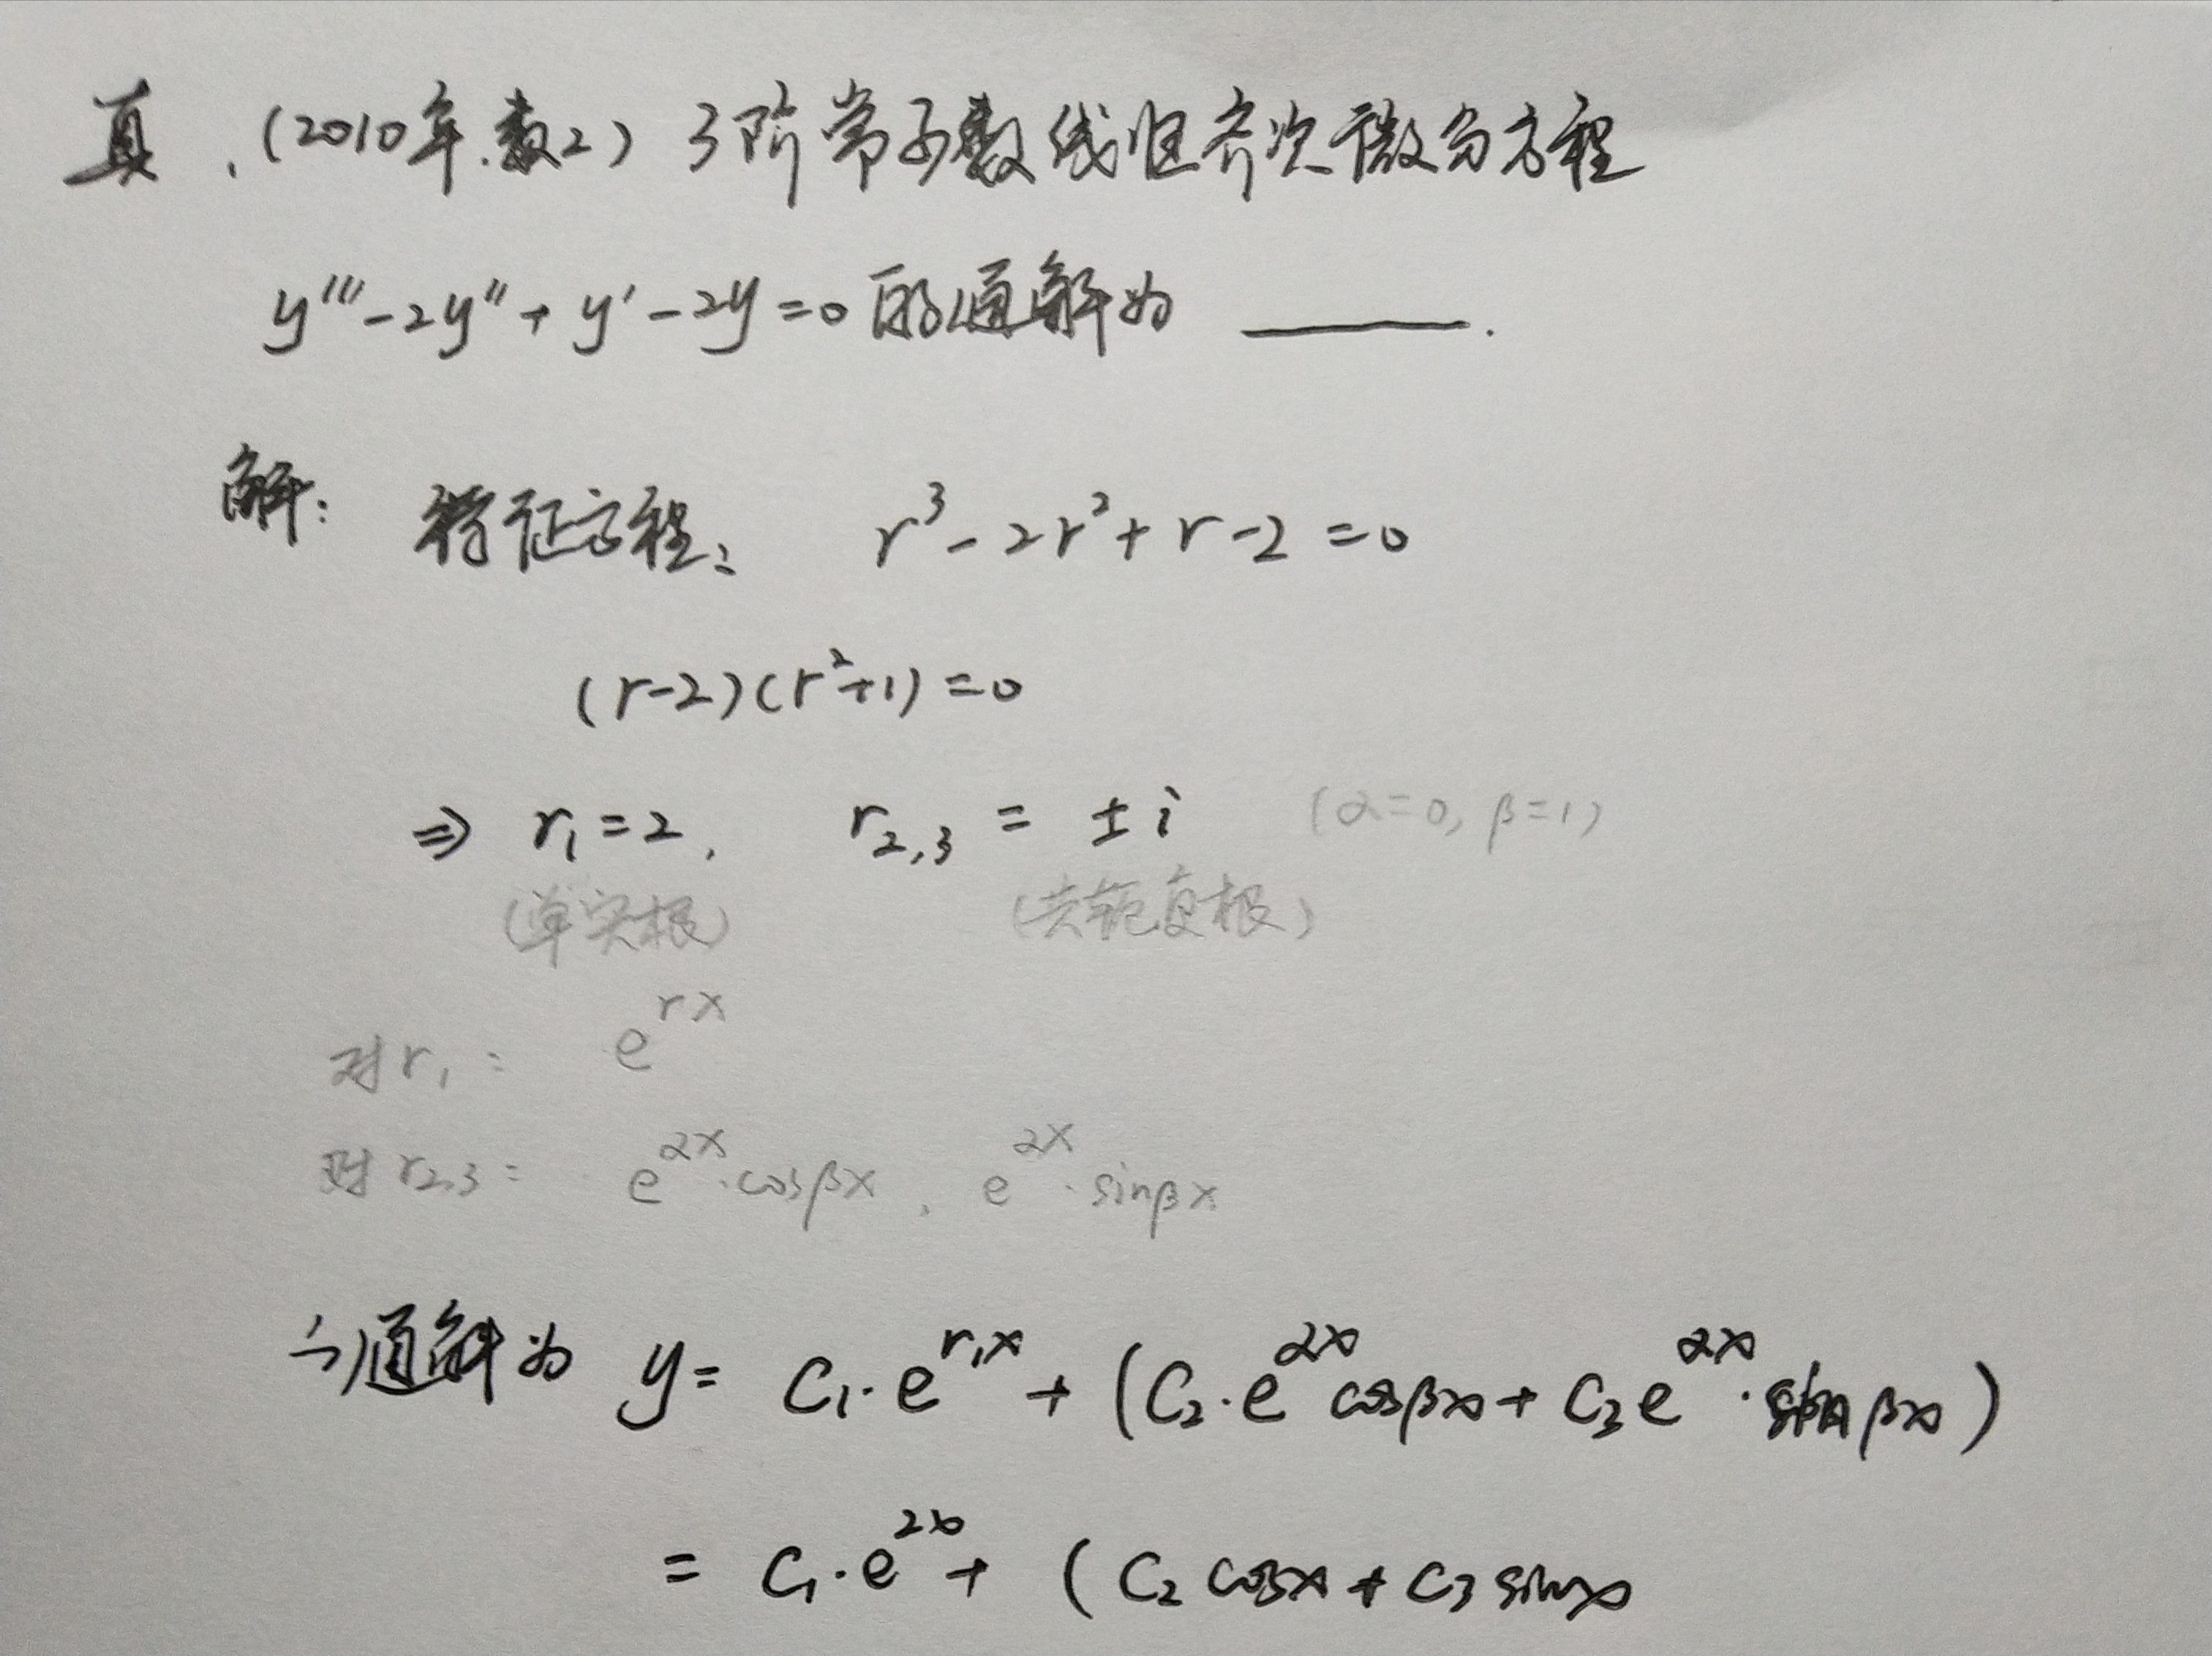 真.(2010年.数2) 3阶常系数线性齐次微分方程
y''' - 2y'' + y' - 2y = 0 的通解为 ______.
解: 特征方程: r³ - 2r² + r - 2 = 0
(r-2)(r²+1) = 0
⇒ r₁ = 2, r₂,₃ = ± i (α=0, β=1)
(单实根) (共轭复根)
对r₁: e^{rx}
对r₂,₃: e^{αx}·cosβx, e^{αx}·sinβx
∴通解为 y = C₁·e^{r₁x} + (C₂·e^{αx}cosβx + C₃e^{αx}·sinβx)
= C₁·e^{2x} + (C₂cosx + C₃sinx